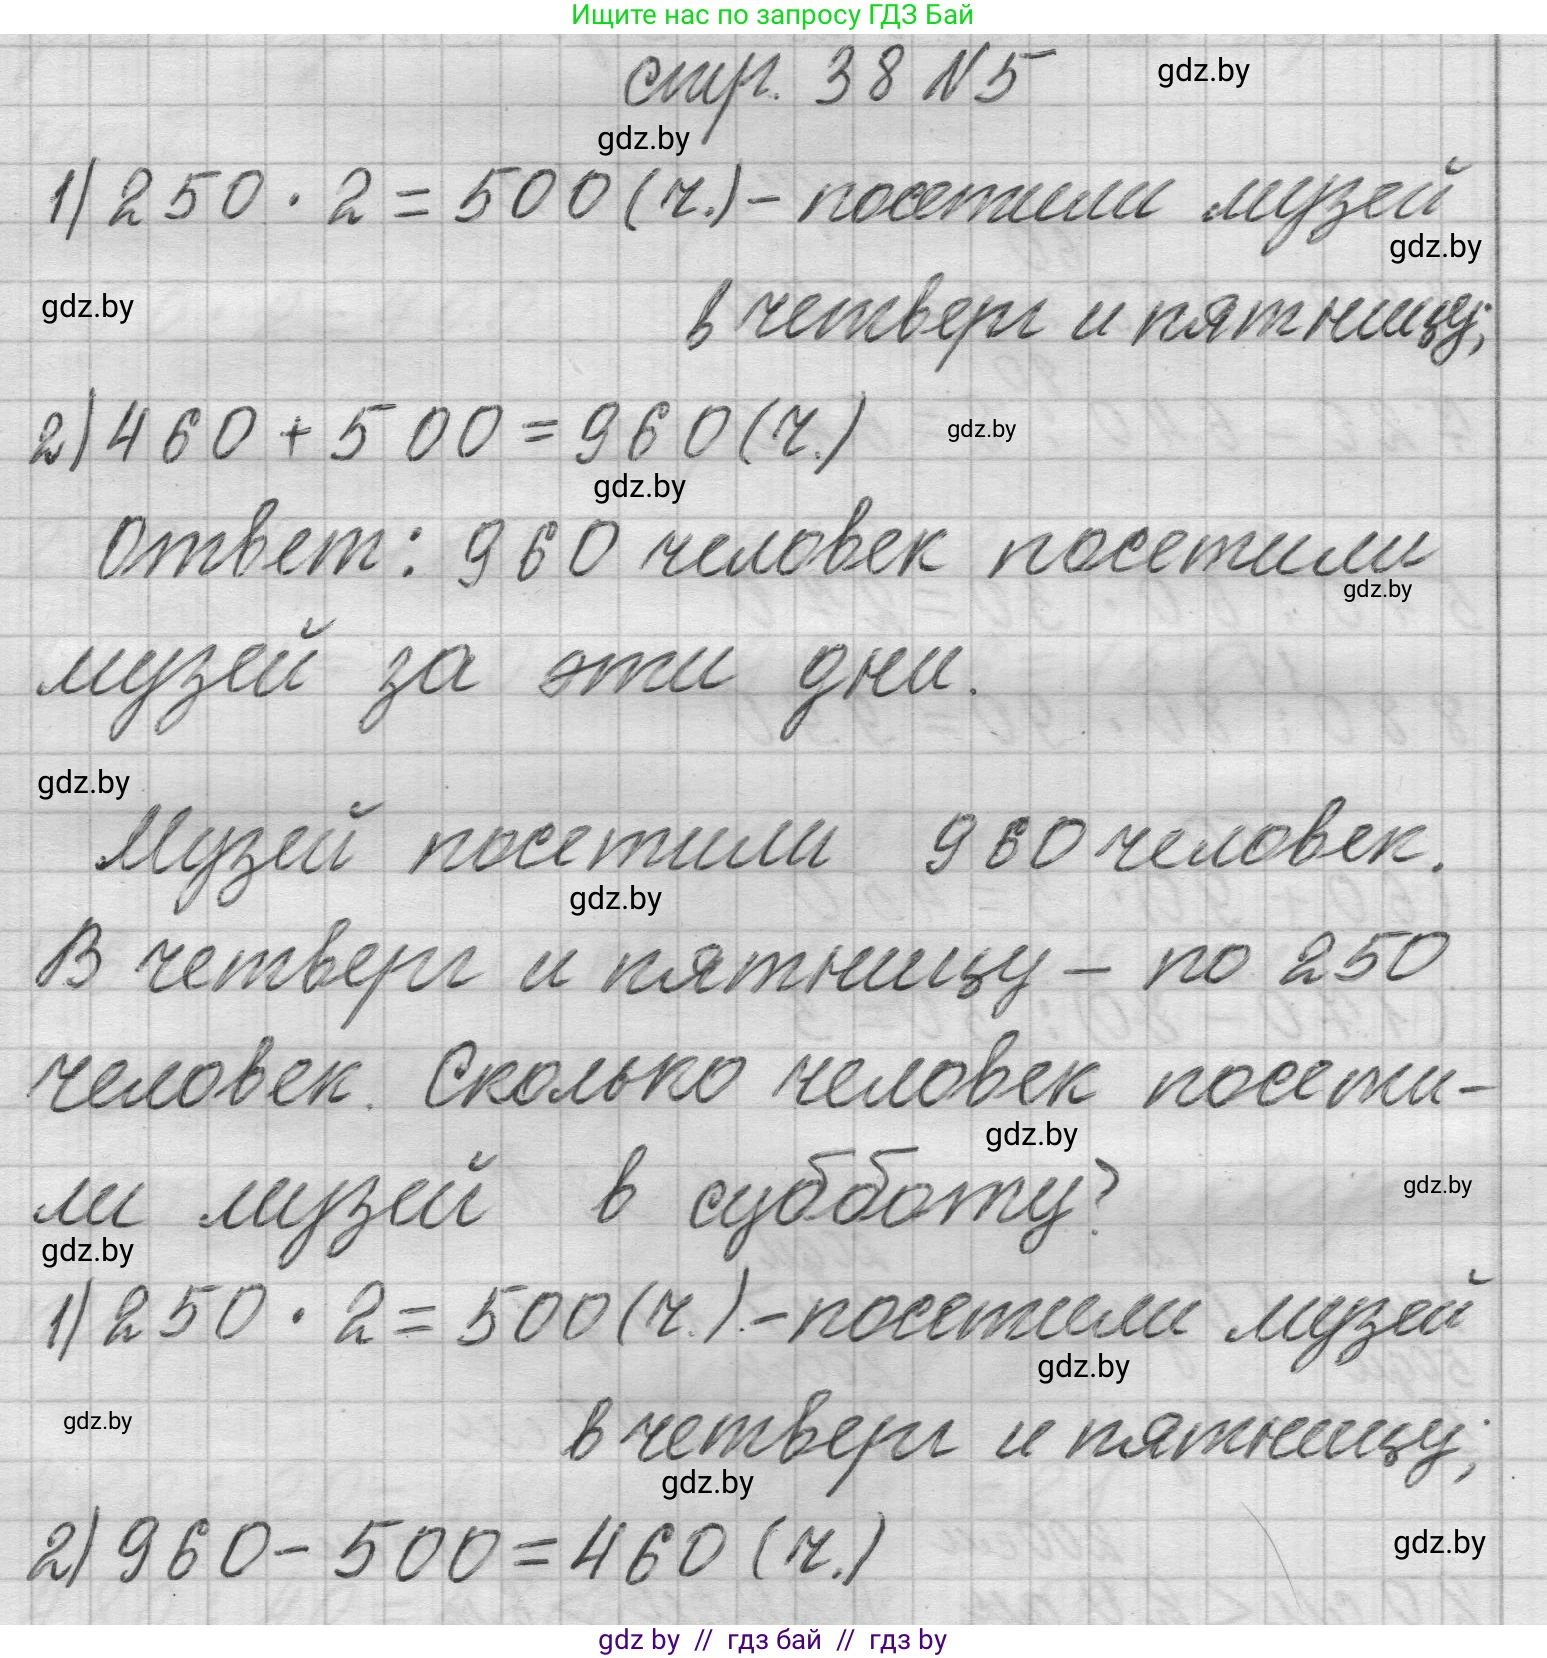 Ищите нас по запросу ГДЗ Бай
стр. 38 №5
gdz.by
gdz.by
1) 250 · 2 = 500 (ч.) – посетили музей
gdz.by
gdz.by
в четверг и пятницу;
2) 460 + 500 = 960 (ч.)
gdz.by
gdz.by
Ответ: 960 человек посетили
gdz.by
музей за эти дни.
gdz.by
Музей посетили 960 человек.
gdz.by
В четверг и пятницу – по 250
человек. Сколько человек посети-
gdz.by
ли музей в субботу?
gdz.by
gdz.by
1) 250 · 2 = 500 (ч.) – посетили музей
gdz.by
gdz.by
в четверг и пятницу;
gdz.by
2) 960 – 500 = 460 (ч.)
gdz.by
gdz by // гдз бай // гдз by